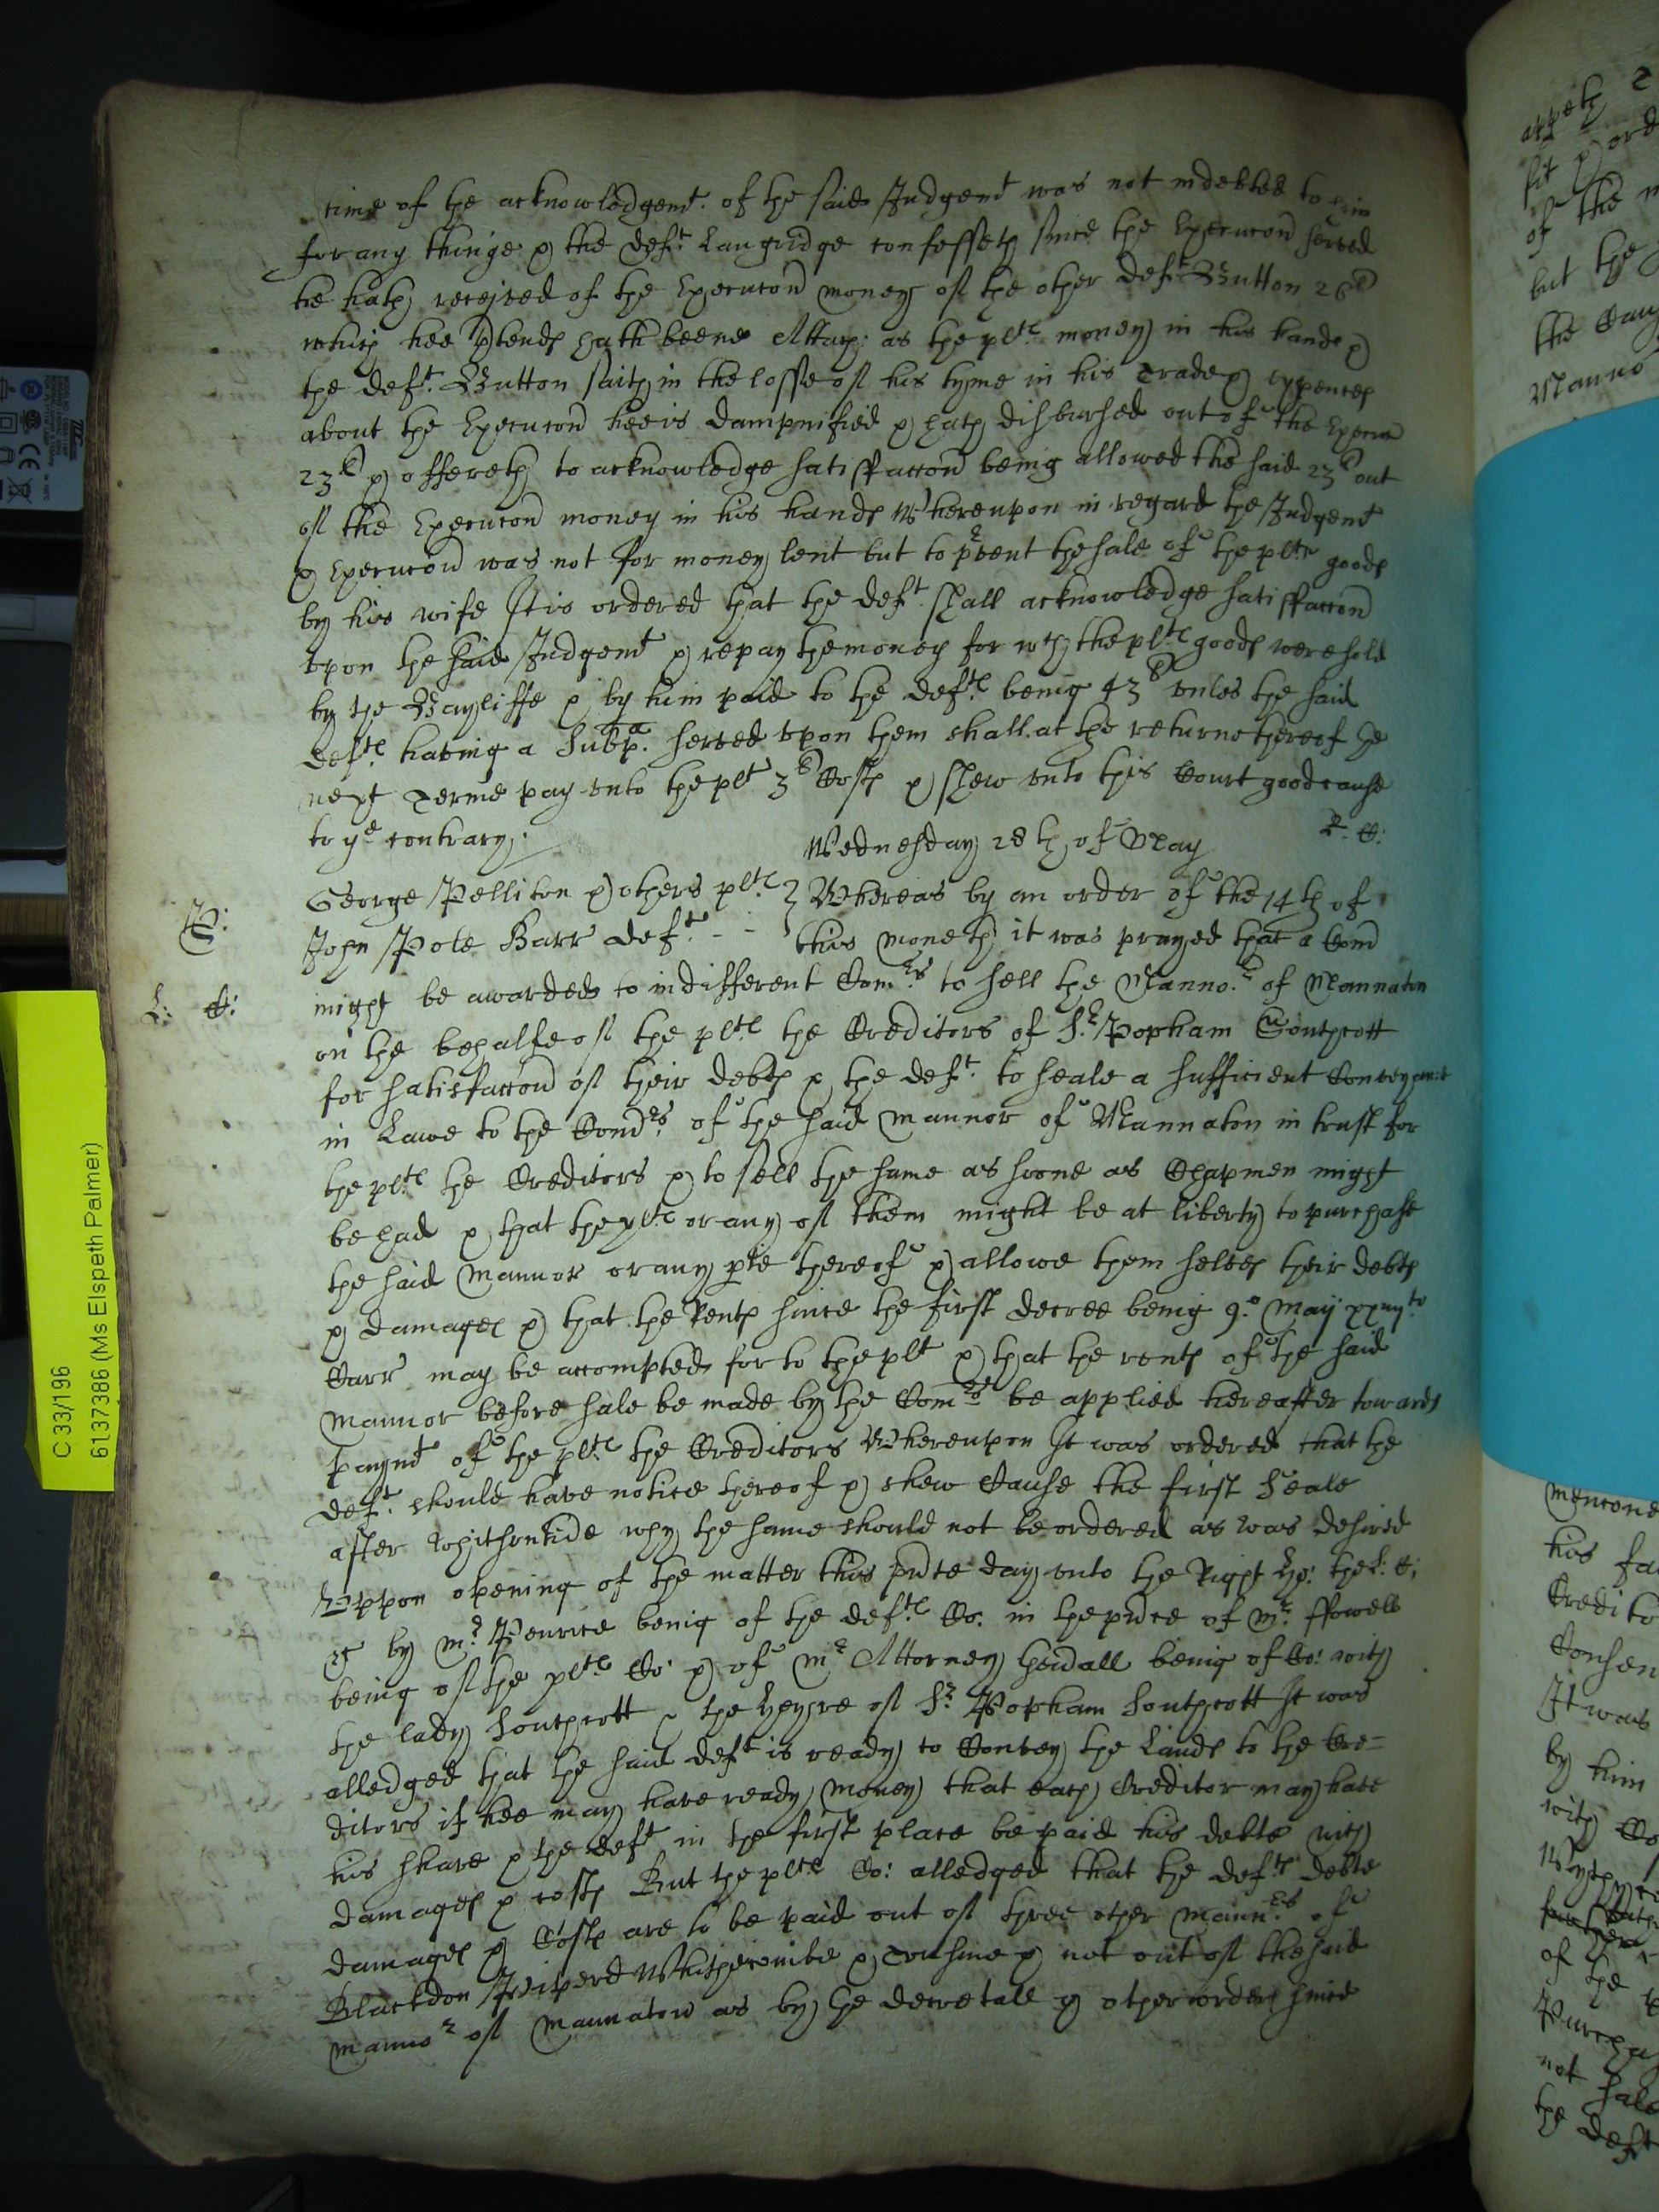 time of the acknowledgemt. of the said Judgemt was not indebted to him
for any thinge & the deft Langridge confesseth since the Execucon served
he hath received of the Execucon money of the other deft Button 26li
which hee ptends hath beene Attach: as the plts money in his hands &
the deft. Button saith in the losse of his tyme in his Trade & expences
about the Execucon hee is dampnified & hath disbursed out of the Execucon
23li & offereth to acknowledge satisfaccon being allowed the said 23li out
of the Execucon money in his hands Whereupon in regard the Judgemt
& Execucon was not for money lent but to prevent the sale of the plts goods
by his wife It is ordered that the deft. shall acknowledge satisfaccon
upon the said Judgemt & repay the money for wch the plts goods were sold
by the Bayliffe & by him paid to the defts being 43li unles the said
defts having a Subpa. served upon them shall at the returne thereof the
next Terme pay unto the plt 3li Costs & shew unto this Court good cause
to ye contrary.
Wednesday 28th of May
R. C:
P:
George Pelliton & others plts } Whereas by an order of the 14th of
John Pole Barr deft - - } this moneth it was prayed that a Comn
L: C:
might be awarded to indifferent Comrs to sell the Manno.r of Mannaton
on the behalfe of the plts the Creditors of Sr. Popham Southcott
for satisfaccon of their debts & the deft. to seale a sufficient Conveyance
in Lawe to the Comrs of the said Mannor of Mannaton in trust for
the plts the Creditors & to sell the same as soone as Chapmen might
be had & that the plts or any of them might be at liberty to purchase
the said Mannor or any pte thereof & allowe them selves their debts
& damages & that the Rents since the first decree being 9.o Maij
Carr may be accompted for to the plt & that the rents of the said
Mannor before sale be made by the Comrs be applied hereafter towards
paymt of the plts the Creditors Whereupon It was ordered that the
deft. should have notice thereof & shew Cause the first Seale
after Whitsontide why the same should not be ordered as was desired
Uppon opening of the matter this pnte day unto the Right ho: the L: C:
by Mr. Penrice being of the defts Co: in the pnce of Mr. ffowell
being of the plts Co: & of Mr Attorney Hendall being of Co: with
the lady Southcott the heyre of Sr. Popham Southcott It was
alledged that the said deft is ready to Convey the Lands to the Cre=
ditors if hee may have ready money that each Creditor may have
his share & the deft in the first place be paid his debte with
damages & costs But the plts Co: alledged that the defts debte
damages & Costs are to be paid out of three other Mannrs of
Blackdon Pipard Whithecombe & & not out of the said
Mannor of Mannaton as by the decretall & other orders since
C 33/196
6137386 (Ms Elspeth Palmer)